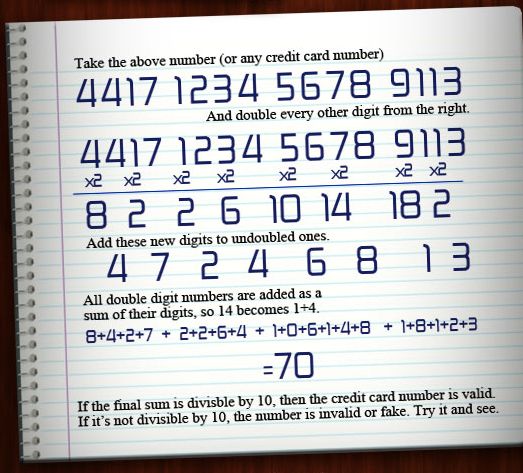 Take the above number (or any credit card number)
4417 1234 5678 9113
And double every other digit from the right.
4417 1234 5678 9113
x2 x2 x2 x2 x2 x2 x2 x2
8 2 2 6 10 14 18 2
Add these new digits to undoubled ones.
4 7 2 4 6 8 1 3
All double digit numbers are added as a
sum of their digits, so 14 becomes 1+4.
8+4+2+7 + 2+2+6+4 + 1+0+6+1+4+8 + 1+8+1+2+3
=70
If the final sum is divisble by 10, then the credit card number is valid.
If it's not divisible by 10, the number is invalid or fake. Try it and see.